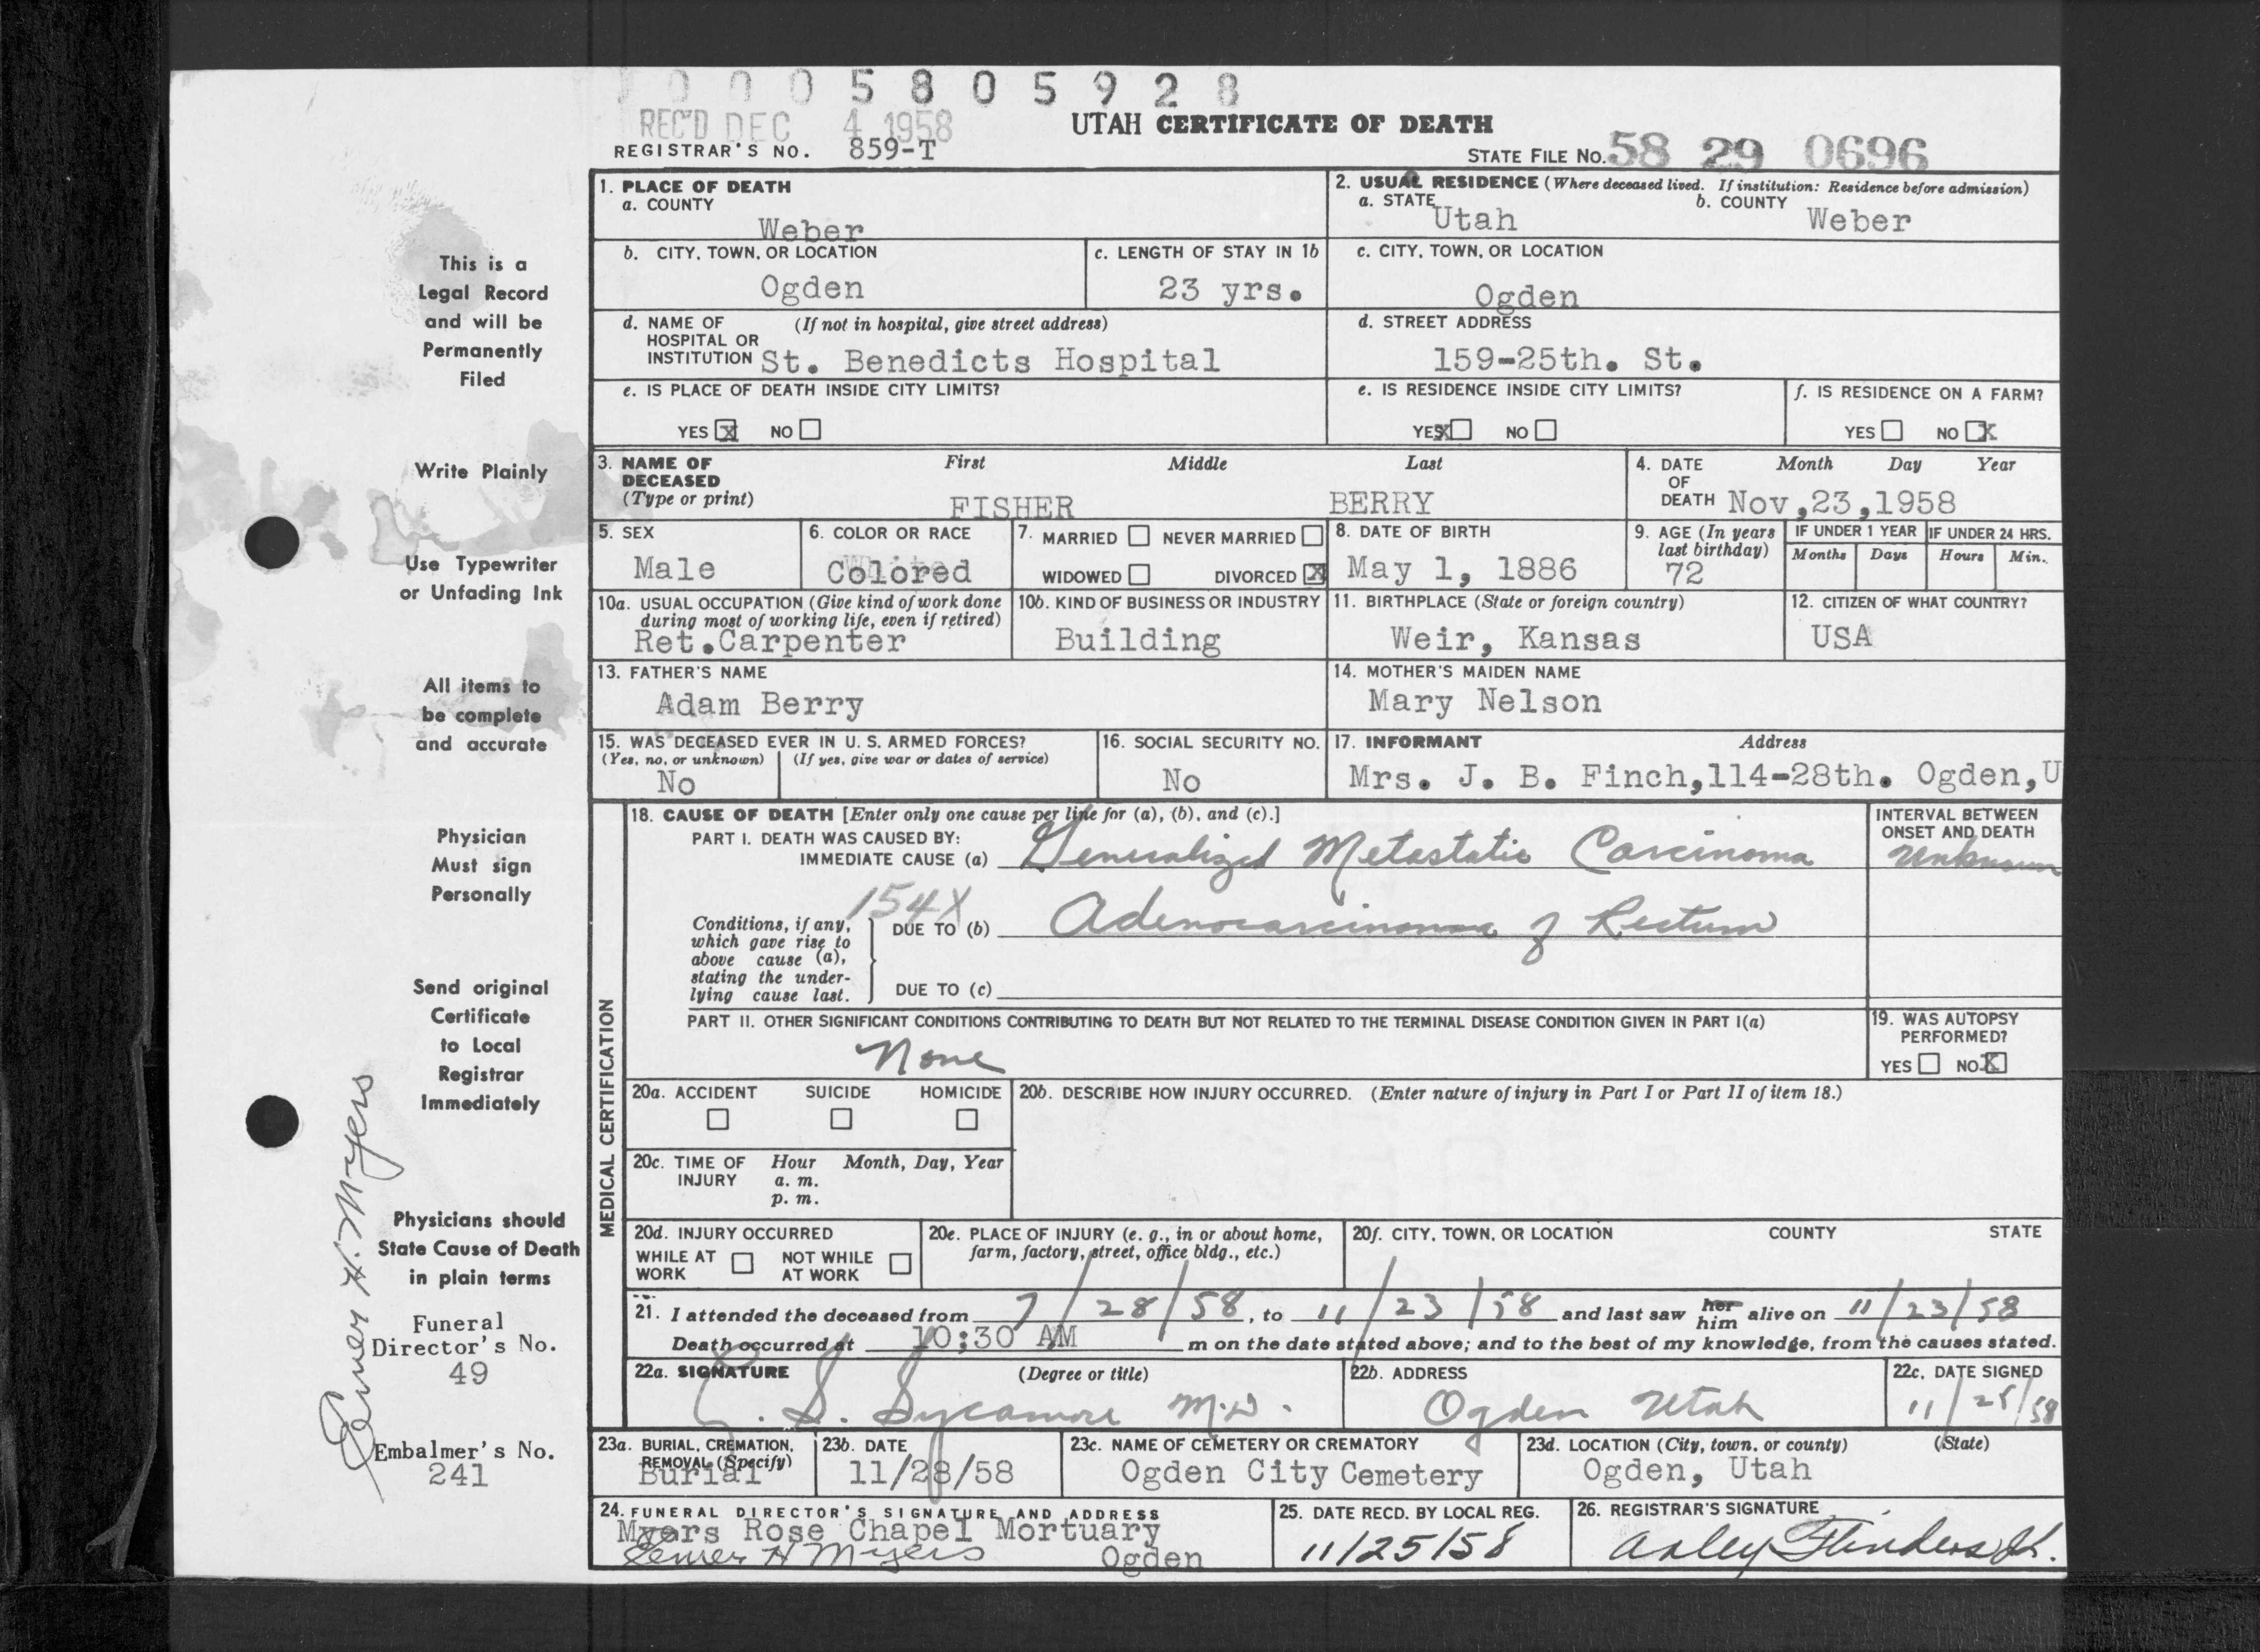 0 0 0 5 8 0 5 9 2 8
REC'D DEC 4 1958
UTAH CERTIFICATE OF DEATH
REGISTRAR'S NO. 859-T
STATE FILE NO. 58 29 0696
1. PLACE OF DEATH
a. COUNTY
Weber
2. USUAL RESIDENCE (Where deceased lived. If institution: Residence before admission)
a. STATE Utah b. COUNTY Weber
b. CITY, TOWN, OR LOCATION
Ogden
c. LENGTH OF STAY IN 1b
23 yrs.
c. CITY, TOWN, OR LOCATION
Ogden
d. NAME OF (If not in hospital, give street address)
HOSPITAL OR
INSTITUTION St. Benedicts Hospital
d. STREET ADDRESS
159-25th. St.
e. IS PLACE OF DEATH INSIDE CITY LIMITS?
YES X NO
e. IS RESIDENCE INSIDE CITY LIMITS?
YES X NO
f. IS RESIDENCE ON A FARM?
YES NO X
3. NAME OF DECEASED
(Type or print)
First Middle Last
FISHER BERRY
4. DATE OF DEATH
Month Day Year
Nov,23,1958
5. SEX
Male
6. COLOR OR RACE
Colored
7. MARRIED NEVER MARRIED
WIDOWED DIVORCED X
8. DATE OF BIRTH
May 1, 1886
9. AGE (In years
last birthday)
72
IF UNDER 1 YEAR
Months Days
IF UNDER 24 HRS.
Hours Min.
10a. USUAL OCCUPATION (Give kind of work done
during most of working life, even if retired)
Ret.Carpenter
10b. KIND OF BUSINESS OR INDUSTRY
Building
11. BIRTHPLACE (State or foreign country)
Weir, Kansas
12. CITIZEN OF WHAT COUNTRY?
USA
13. FATHER'S NAME
Adam Berry
14. MOTHER'S MAIDEN NAME
Mary Nelson
15. WAS DECEASED EVER IN U. S. ARMED FORCES?
(Yes, no, or unknown) (If yes, give war or dates of service)
No
16. SOCIAL SECURITY NO.
No
17. INFORMANT Address
Mrs. J. B. Finch,114-28th. Ogden,U
MEDICAL CERTIFICATION
18. CAUSE OF DEATH [Enter only one cause per line for (a), (b), and (c).]
PART I. DEATH WAS CAUSED BY:
IMMEDIATE CAUSE (a) Generalized Metastatic Carcinoma
INTERVAL BETWEEN
ONSET AND DEATH
Unknown
154X
Conditions, if any,
which gave rise to
above cause (a),
stating the under-
lying cause last.
DUE TO (b) Adenocarcinoma of Rectum
DUE TO (c)
PART II. OTHER SIGNIFICANT CONDITIONS CONTRIBUTING TO DEATH BUT NOT RELATED TO THE TERMINAL DISEASE CONDITION GIVEN IN PART I(a)
None
19. WAS AUTOPSY
PERFORMED?
YES NO X
20a. ACCIDENT SUICIDE HOMICIDE
20b. DESCRIBE HOW INJURY OCCURRED. (Enter nature of injury in Part I or Part II of item 18.)
20c. TIME OF Hour Month, Day, Year
INJURY a. m.
p. m.
20d. INJURY OCCURRED
WHILE AT WORK NOT WHILE AT WORK
20e. PLACE OF INJURY (e. g., in or about home,
farm, factory, street, office bldg., etc.)
20f. CITY, TOWN, OR LOCATION COUNTY STATE
21. I attended the deceased from 7/28/58, to 11/23/58 and last saw her him alive on 11/23/58
Death occurred at 10:30 AM m on the date stated above; and to the best of my knowledge, from the causes stated.
22a. SIGNATURE (Degree or title)
S. Sycamore M.D.
22b. ADDRESS
Ogden Utah
22c. DATE SIGNED
11/25/58
23a. BURIAL, CREMATION,
REMOVAL (Specify)
Burial
23b. DATE
11/28/58
23c. NAME OF CEMETERY OR CREMATORY
Ogden City Cemetery
23d. LOCATION (City, town, or county) (State)
Ogden, Utah
24. FUNERAL DIRECTOR'S SIGNATURE AND ADDRESS
Myers Rose Chapel Mortuary
Elmer H Myers Ogden
25. DATE RECD. BY LOCAL REG.
11/25/58
26. REGISTRAR'S SIGNATURE
Arley Flinders
This is a
Legal Record
and will be
Permanently
Filed
Write Plainly
Use Typewriter
or Unfading Ink
All items to
be complete
and accurate
Physician
Must sign
Personally
Send original
Certificate
to Local
Registrar
Immediately
Physicians should
State Cause of Death
in plain terms
Funeral
Director's No.
49
Embalmer's No.
241
Elmer H. Myers